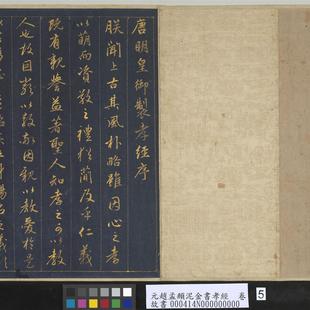 唐明皇御製孝經序
朕聞上古其風朴略雖因心之孝
以萌而資敬之禮猶簡及乎仁義
既有親譽益著聖人知孝之可以教
人也故因嚴以教敬因親以教愛於是
元趙孟頫泥金書孝經 卷
故書 000414N000000000
5